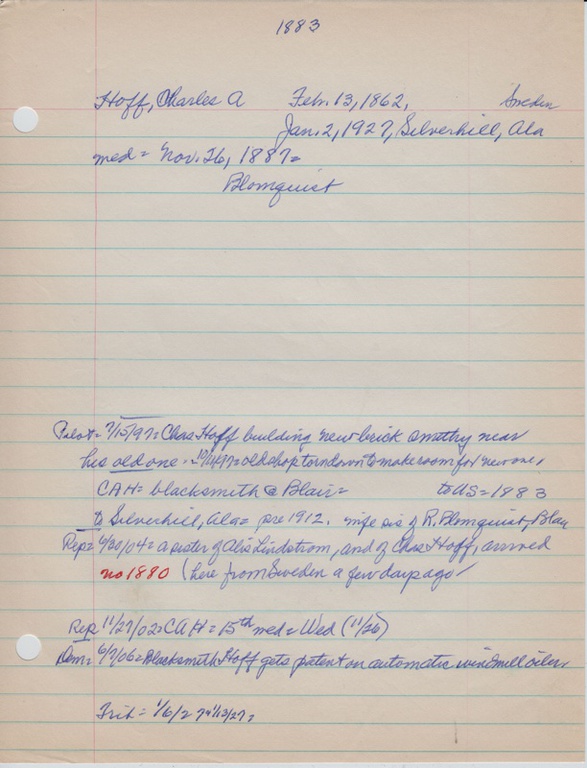 1883
Hoff, Charles A Feb. 13, 1862, Sweden
Jan. 2, 1927, Silverhill, Ala
med = Nov. 26, 1887=
Blomquist
Pilot= 7/15/97= Chas Hoff building new brick smithy near
his old one. = 10/14/97= old shop torn down to make room for new one.
CAH= blacksmith @ Blair= to US= 1883
to Silverhill, Ala= pre 1912. wife sis of R. Blomquist, Blair
Rep= 6/20/04= a sister of Lindstrom, and of Chas Hoff, arrived
no 1880 (here from Sweden a few days ago
Rep 11/27/02= CAH= 15th med= Wed (11/26)
Dem= 6/7/06= Blacksmith Hoff gets patent on automatic windmill oiler.
Trib= 1/6/27 & 1/13/27=